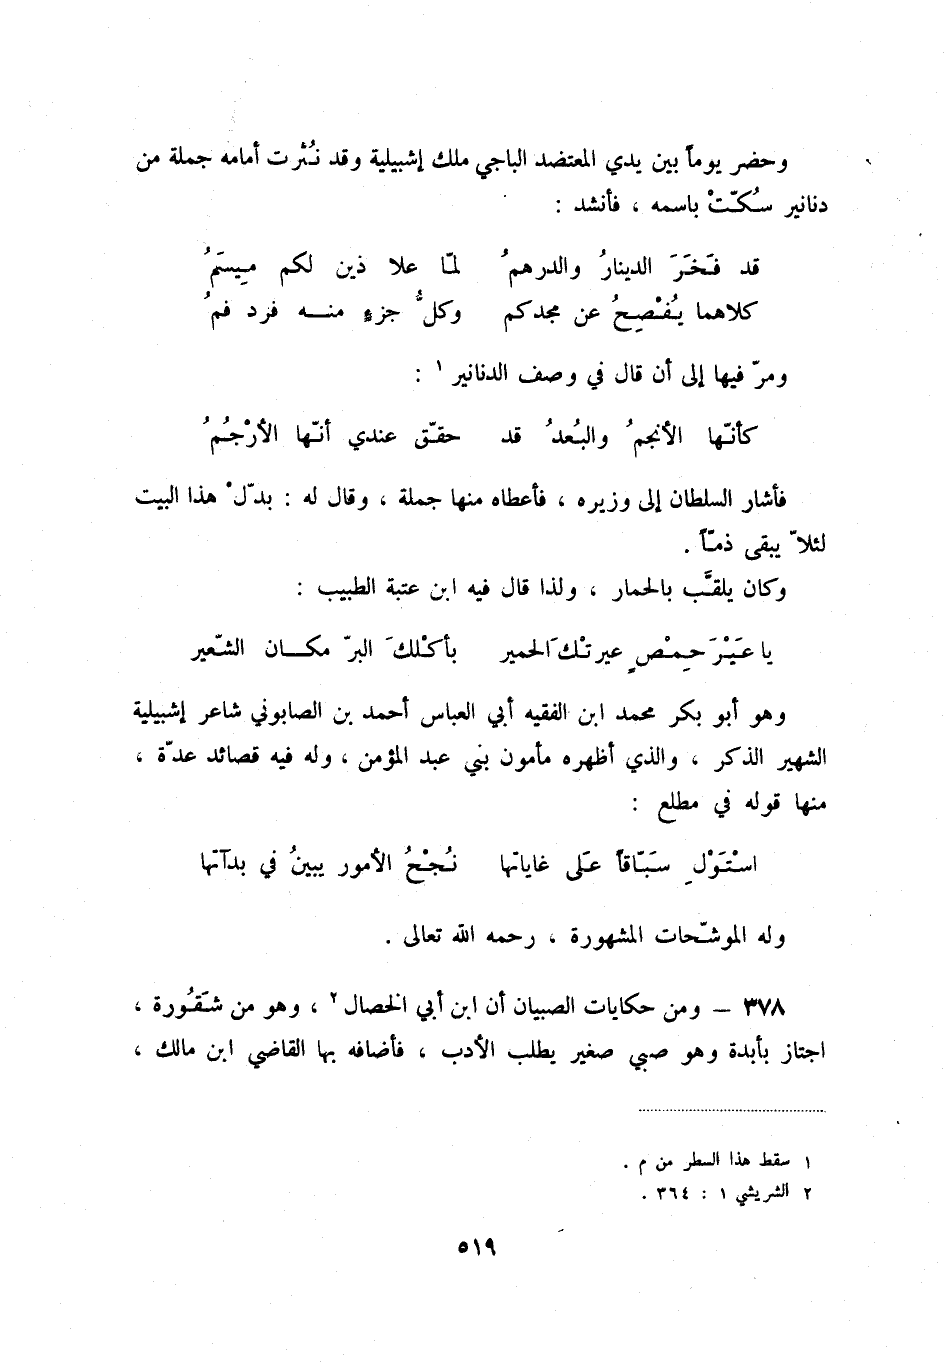 وحضر يوماً بين يدي المعتضد الباجي ملك إشبيلية وقد نُثرت أمامه جملة من
دنانير سُكّتْ باسمه ، فأنشد :
قد فَخَرَ الدينارُ والدرهمُ لمّا علا ذين لكم مِيسَمُ
كلاهما يُفْصِحُ عن مجدكم وكلُّ جزءٍ منه فرد فمُ
ومرّ فيها إلى أن قال في وصف الدنانير ١ :
كأنّها الأنجمُ والبُعدُ قد حقّق عندي أنّها الأرْجُمُ
فأشار السلطان إلى وزيره ، فأعطاه منها جملة ، وقال له : بدّلْ هذا البيت
لئلاّ يبقى ذمّاً .
وكان يلقَّب بالحمار ، ولذا قال فيه ابن عتبة الطبيب :
يا عَيْرَ حِمْصٍ عيرتْكَ الحمير بأكْلكَ البرّ مكان الشّعير
وهو أبو بكر محمد ابن الفقيه أبي العباس أحمد بن الصابوني شاعر إشبيلية
الشهير الذكر ، والذي أظهره مأمون بني عبد المؤمن ، وله فيه قصائد عدّة ،
منها قوله في مطلع :
اسْتَوْلِ سَبّاقاً عَلى غاياتها نُجْحُ الأمور يبينُ في بدآتها
وله الموشّحات المشهورة ، رحمه الله تعالى .
٣٧٨ – ومن حكايات الصبيان أن ابن أبي الخصال ٢ ، وهو من شَقُورة ،
اجتاز بأبدة وهو صبي صغير يطلب الأدب ، فأضافه بها القاضي ابن مالك ،
١ سقط هذا السطر من م .
٢ الشريشي ١ : ٣٦٤ .
٥١٩